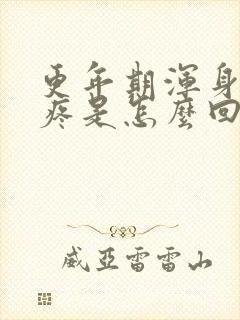 更年期渾身
疼是怎麼回
威亞雷雷山